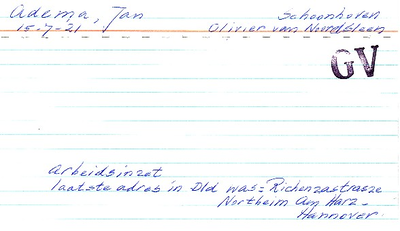 Adema, Jan
Schoonhoven
15-7-21
Olivier van Noordsleen
GV
Arbeidsinzet
laatste adres in Dld was = Richenzastrasze
Northeim Am Harz -
Hannover.